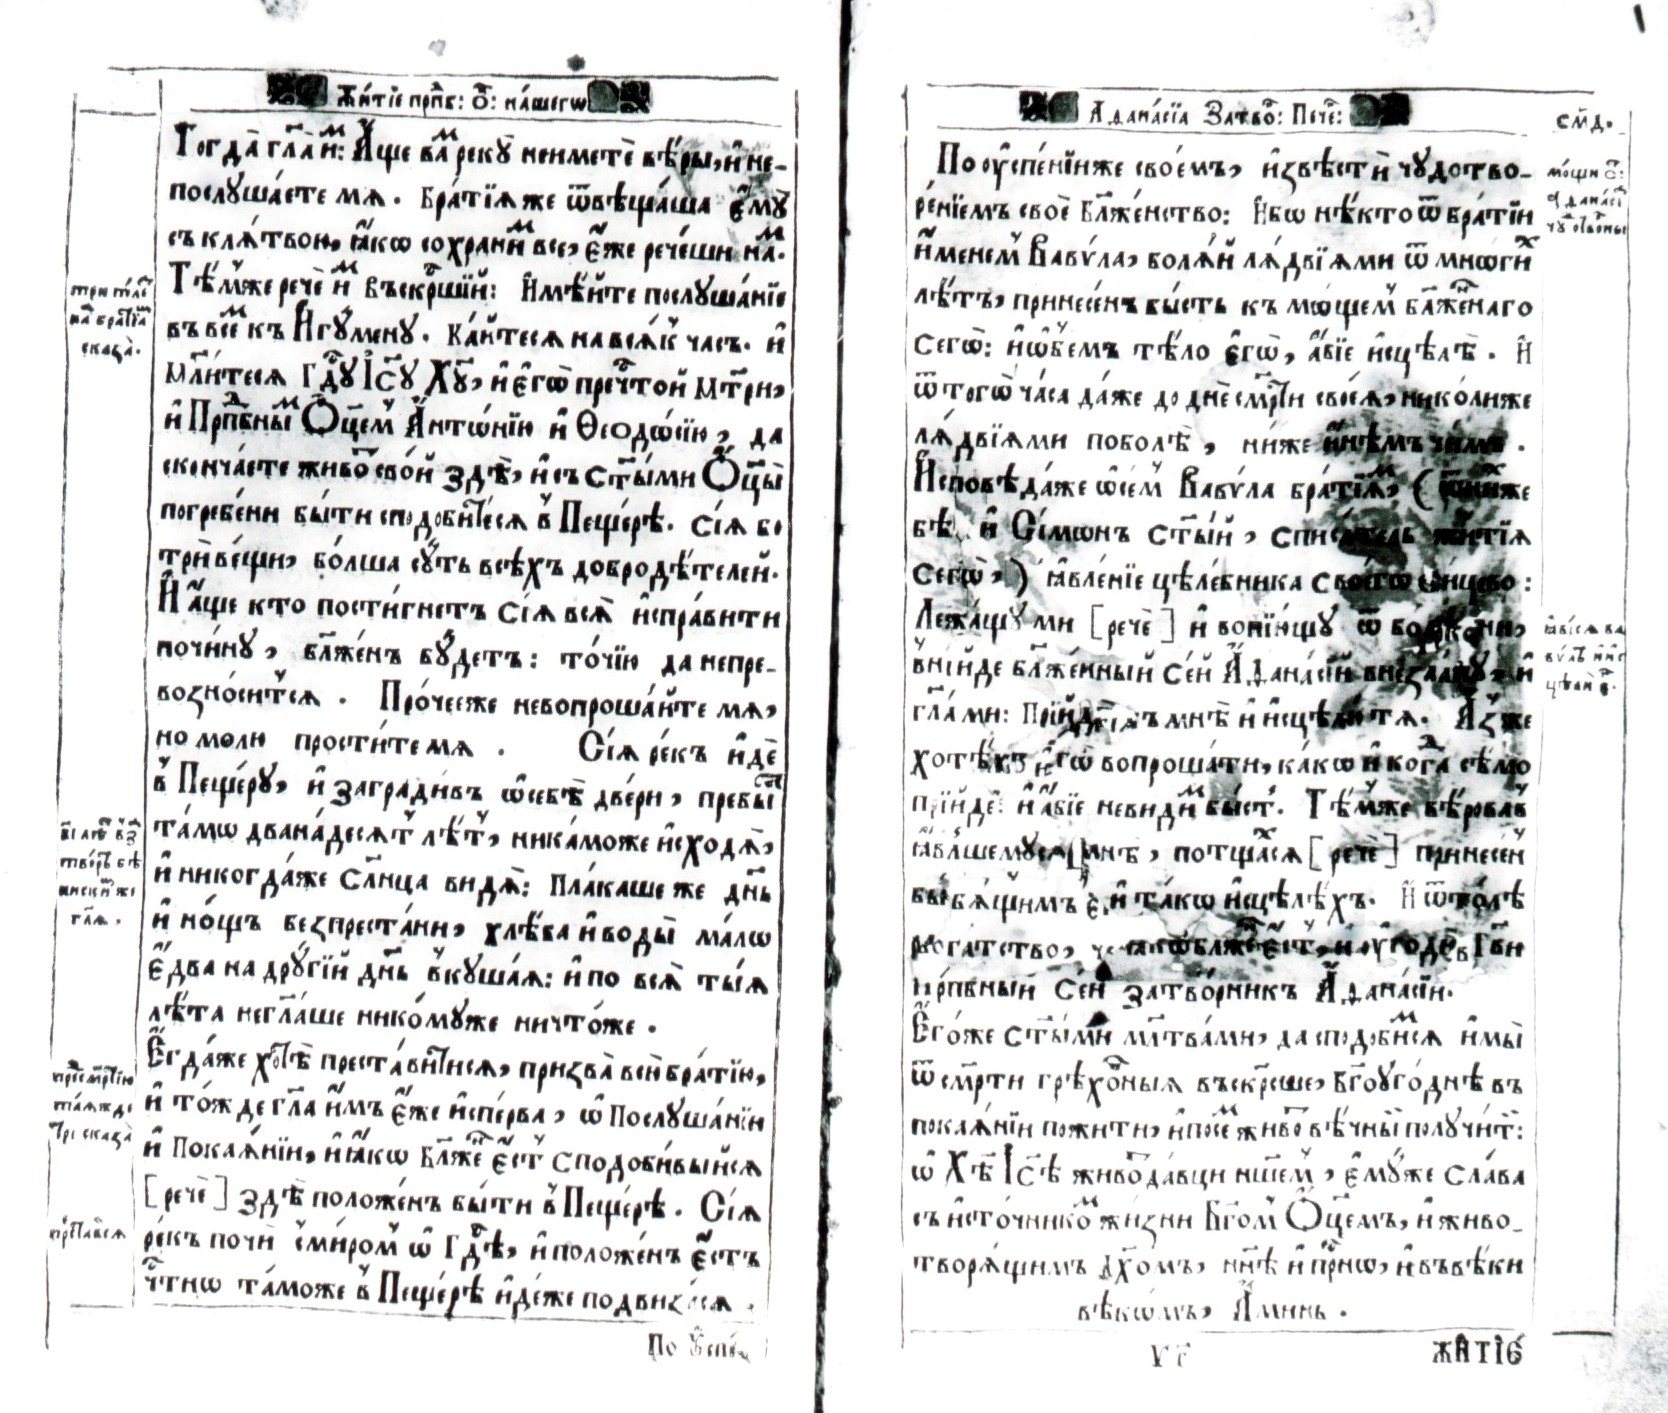 Житїе прпб: Ѻ: нашегѡ
Тогда̀ гл҃а и҆м: А҆ще ва́м рекꙋ̀ неиметѐ вѣ́ры, и҆ не-
послꙋша́ете мѧ. Бра́тїѧ же ѿвѣща́ша є҆мꙋ̀
съ клѧ́твою, ꙗ҆́кѡ сохрани́м все, є҆́же рече́ши на́м.
Тѣ́мже речѐ и҆м въскр҃шїй: И҆мѣ́йте послꙋша́нїе
въ все́м къ И҆гꙋ́менꙋ. Ка́йтесѧ на всѧ́к часъ. и҆
мл҃и́тесѧ Гдⷭ҇ꙋ І҆с҃ꙋ Хꙋ҃, и҆ є҆гѡ̀ пречⷭ҇той Мт҃ри,
и҆ Прпⷣбны́м Ѻ҆ц҃ем А҆нтѡ́нїю и҆ Ѳеодѡ́сїю, да
сконча́ете живо́т сво́й здѣ̀, и҆ съ ст҃ы́ми Ѻ҆ц҃ы̀
погребе́ни бы́ти сподо́битесѧ в Пещѐрѣ. Сїѧ̀ бо
трѝ ве́щи, бо́лша сꙋ́ть всѣ́хъ добродѣ́телей.
И҆ а҆́ще кто пости́гнетъ сїѧ̀ всѧ̀ и҆спра́вити
почи́нꙋ, бл҃же́нъ бꙋ́детъ: то́чїю да непре-
возно́ситсѧ. Про́чееже невопроша́йте мѧ,
но молю прости́те мѧ. Сїѧ̀ ре́къ и҆́дѐ
в Пеще́рꙋ, и҆ загради́въ ѡ҆ себѣ̀ две́ри, пребы́ст
та́мѡ двана́десѧт лѣ́т, ника́може и҆сходѧ̀,
и҆ никогда́же Сл҃нца видѧ̀: Пла́каше же дн҃ь
и҆ но́щъ безпреста́ни, хлѣ́ба и҆ воды̀ ма́лѡ
є҆два на дрꙋ́гїй дн҃ь вкꙋша́ѧ: и҆ по всѧ̀ ты́ѧ
лѣ́та негл҃а́ше нико́мꙋже ничто́же.
Є҆гда́же хотѣ̀ преста́витисѧ, призва̀ всю̀ бра́тїю,
и҆ то́жде гл҃а и҆́мъ є҆́же и҆спе́рва, ѡ҆ Послꙋша́нїи
и҆ Покаѧ́нїи, и҆ ꙗ҆́кѡ Бл҃же́н є҆́ст сподоби́выйсѧ
[речѐ] здѣ̀ положе́нъ бы́ти в Пеще́рѣ. Сїѧ̀
ре́къ почѝ с миром ѡ҆ Гдⷭ҇ѣ, и҆ положе́нъ є҆́стъ
чⷭ҇тнѡ та́може в Пеще́рѣ и҆дѣ́же подвиза́сѧ.
три
на бра́тїѧ
сказа̀.
тво́рѣ
гл҃ѧ.
сказа̀
преста́всѧ
По ᲂу҆спе́
А҆ѳана́сїѧ Затво: Пече:
смд.
По ᲂу҆спе́нїиже свое́мъ, и҆звѣстѝ чꙋдотво-
ре́нїемъ своѐ Бл҃же́нство: И҆́бѡ нѣ́кто ѿ бра́тїи
и҆́менем Вавѵ́ла, болѧ́й лѧ́двїѧми ѿ мно́гих
лѣ́тъ, принесе́нъ бы́сть къ мѡ́щем бл҃же́ннаго
сегѡ̀: и҆ ѡ҆б̾е́мъ тѣ́ло є҆гѡ̀, а҆́бїе и҆сцѣлѣ̀. И҆
ѿ тогѡ̀ ча́са да́же до днѐ смр҃ти своеѧ̀, нико́лиже
лѧ́двїѧми поболѣ̀, ни́же и҆нѣ́мъ чи́мъ.
И҆сповѣ́даже ѡ҆ се́м Вавѵ́ла бра́тїѧм, (ѿ ни́хже
бѣ̀ и҆ Сі́мѡнъ ст҃ы́й, списа́тель житїѧ̀
сегѡ̀,) ꙗ҆вле́нїе цѣле́бника своегѡ̀ си́цево:
Лежа́щꙋ ми [речѐ] и҆ вопїю́щꙋ ѿ болѣ́зни,
вни́йде бл҃же́нный се́й А҆ѳана́сїй внеза́апꙋ, и҆
гл҃а ми: Прїйдѝ къ мнѣ̀ и҆ и҆сцѣлю̀ тѧ. А҆́зже
хотѣ́хъ є҆гѡ̀ вопроша́ти, ка́кѡ и҆ когда̀ сѣ́мо
прїйде: и҆ а҆́бїе невиди́м бы́ст. Тѣ́мже вѣ́ровав
ꙗ҆́вльшемꙋсѧ мнѣ̀, потща́хсѧ [речѐ] принесе́н
и҆ та́кѡ и҆сцѣлѣ́хъ. И҆ ѿто́лѣ
Прпⷣбный Се́й затво́рникъ А҆ѳана́сїи.
Є҆го́же ст҃ы́ми мл҃тва́ми, да сподо́бимсѧ и҆ мы̀
ѿ сме́рти грѣхо́вныѧ въскрⷭ҇ше, Бг҃оᲂуго́днѣ въ
покаѧ́нїи пожи́ти, и҆ посе́м живо́т вѣ́чный получи́т:
ѡ҆ Хрⷭ҇тѣ̀ І҆с҃ѣ живода́вци нш҃ем, є҆мꙋ́же сла́ва
съ и҆сто́чником жи́зни Бг҃ом Ѻ҆ц҃емъ, и҆ живо-
творѧ́щимъ дх҃омъ, нн҃ѣ и҆ пр҃нѡ, и҆ въ вѣ́ки
вѣкѡ́мъ, А҆ми́нь.
мо́щи
А҆ѳана́сї
ꙗ҆ви́сѧ ва
вѵ́лѣ
ЖИТІЄ